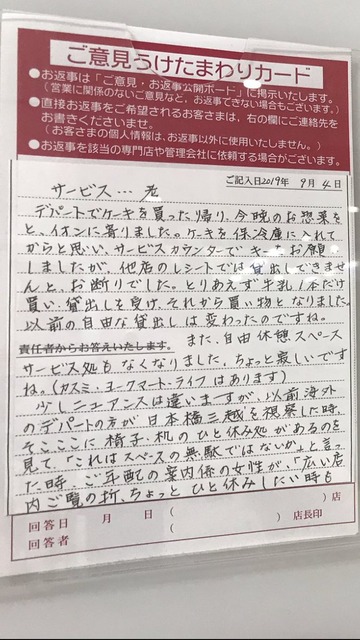 ご意見うけたまわりカード
●お返事は「ご意見・お返事公開ボード」に掲示いたします。
（営業に関係のないご意見など、お返事できない場合もございます。）
●直接お返事をご希望されるお客さまは、右の欄にご連絡先を
お書きくださいませ。
（お客さまの個人情報は、お返事以外に使用いたしません。）
●お返事を該当の専門店や管理会社に依頼する場合がございます。
ご記入日2019年 9月 4日
サービス…
デパートでケーキを買った帰り、今晩のお惣菜を
と、イオンに寄りました。ケーキを保冷庫に入れて
からと思い、サービスカウンターでキーをお願
しましたが、他店のレシートでは貸出しできませ
んと、お断りでした。とりあえず牛乳1本だけ
買い、貸出しを受け、それから買い物となりました。
以前の自由な貸出しは変わったのですね。
責任者からお答えいたします。 また、自由休憩スペース
サービス処もなくなりました、ちょっと寂しいです
ね。（カスミ、ヨークマート・ライフはあります）
少しニュアンスは違いますが、以前海外
のデパートの方が日本橋三越を視察した時、
そこここに椅子・机のひと休み処があるのを
見て、「これはスペースの無駄ではないか」と言っ
た時、ご年配の案内係の女性が、「広い店
内ご覧の折、ちょっとひと休みしたい時も
回答日 月 日 （ ）店
回答者 （ ） 店長印